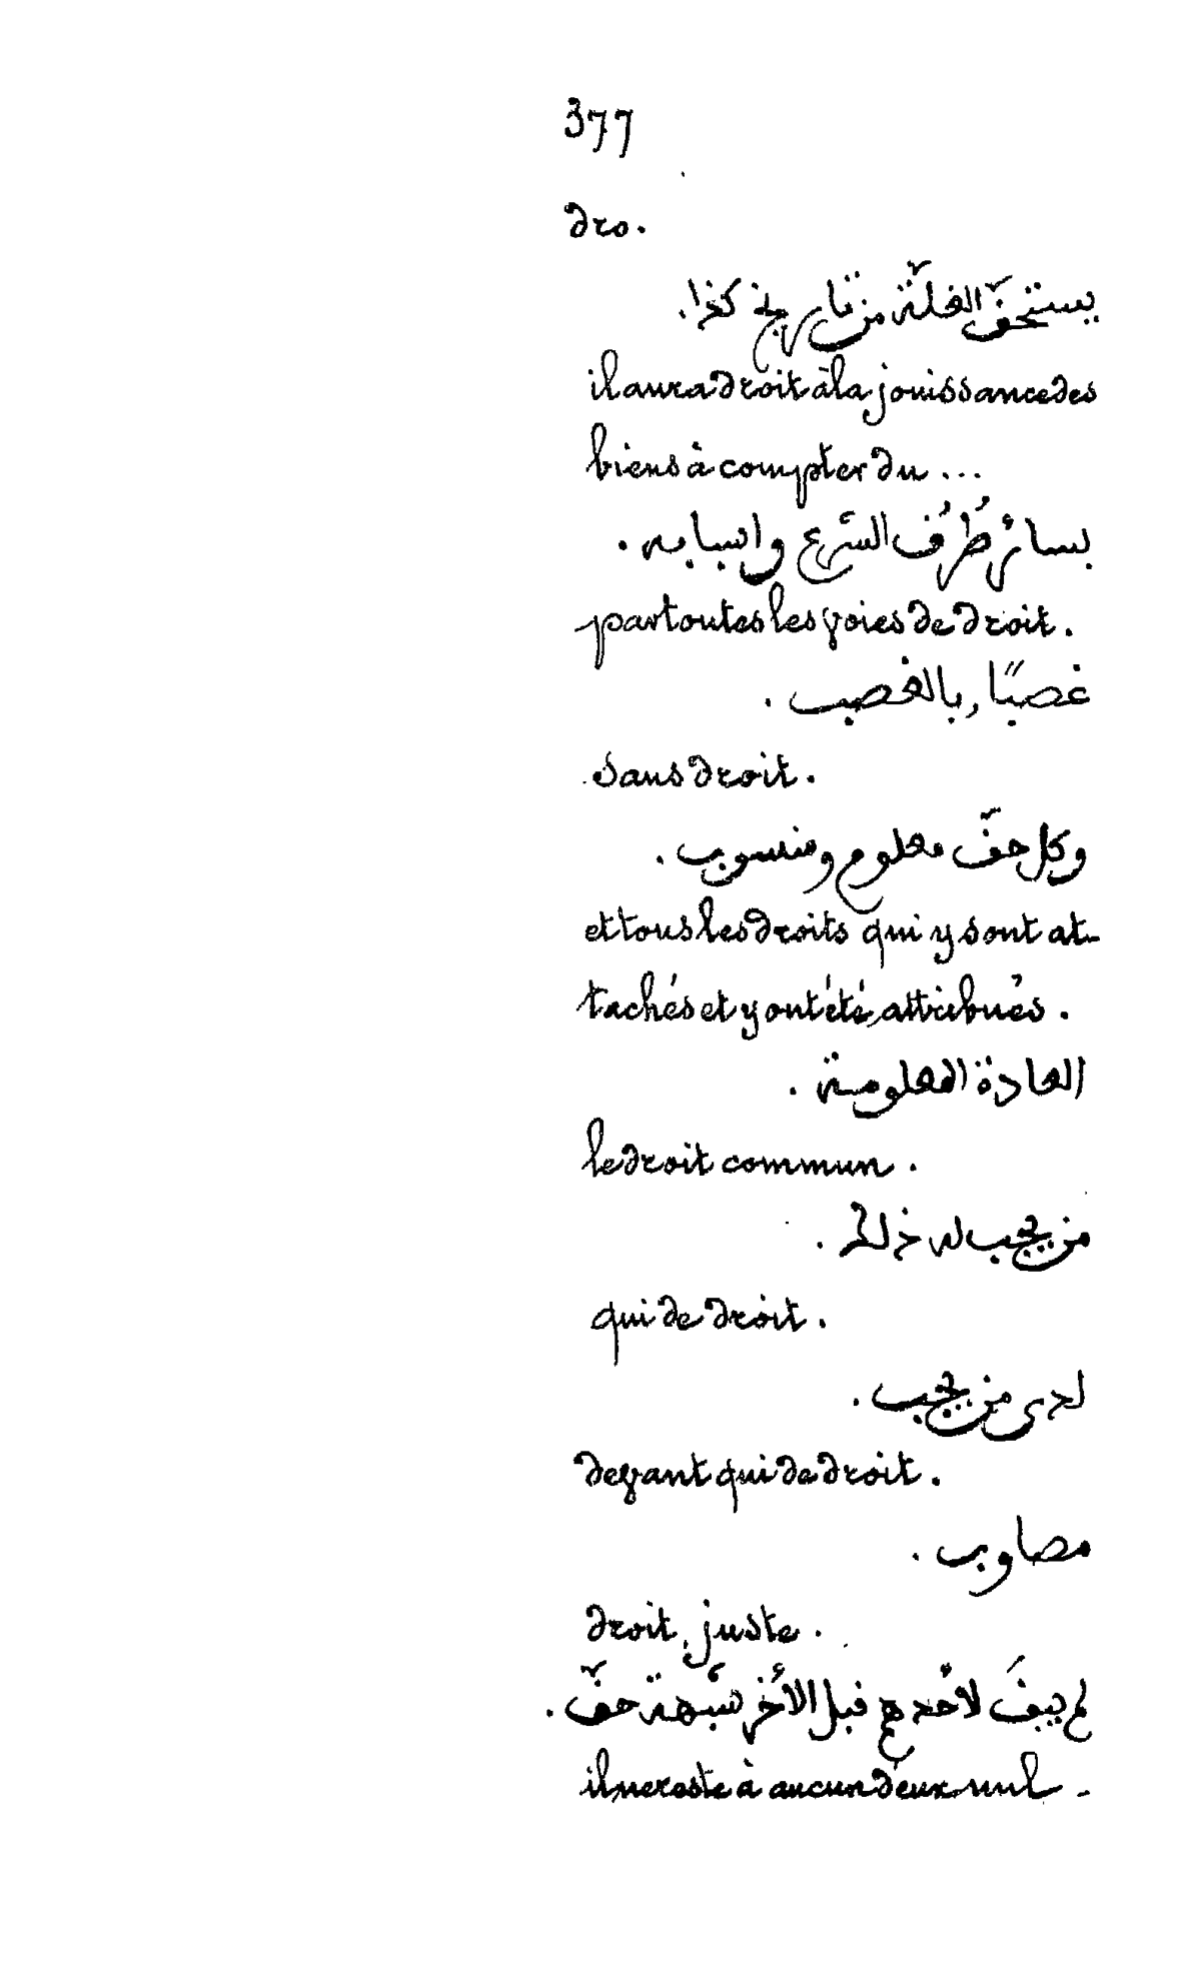 377
dro.
يستحقّ الغلّة من تاريخ كذا.
il aura droit à la jouissance des
biens à compter du ...
بسائر طُرُق الشرع واسبابه.
par toutes les voies de droit.
غصبًا, بالغصب.
sans droit.
وكل حقّ معلوم ومنسوب.
et tous les droits qui y sont at-
tachés et y ont été attribués.
العادة المعلومة.
le droit commun.
من يجب له ذلك.
qui de droit.
لدى من يجب.
devant qui de droit.
مصاوب.
droit, juste.
لم يبقَ لأحدهم قبل الأخر شبهة حقّ.
il ne reste à aucun d'eux nul -